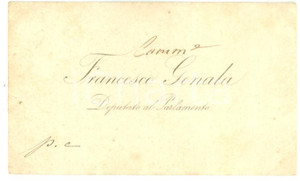 Comm.e
Francesco Genala
Deputato al Parlamento
p. c